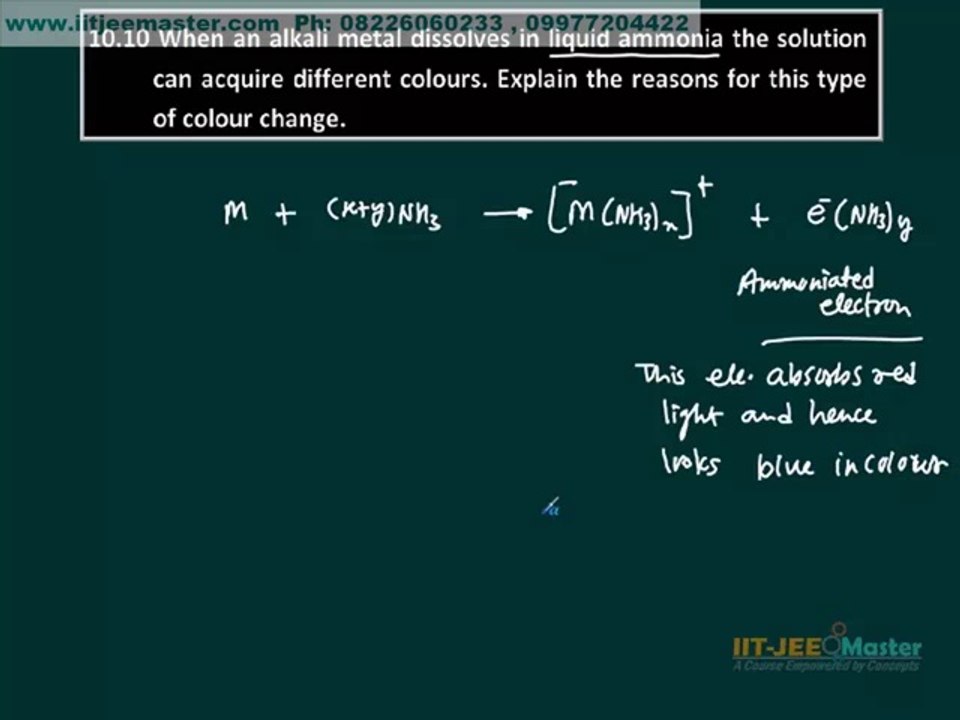 www.iitjeemaster.com Ph: 08226060233 , 09977204422
10.10 When an alkali metal dissolves in liquid ammonia the solution
can acquire different colours. Explain the reasons for this type
of colour change.
M + (x+y)NH₃ → [M(NH₃)ₓ]⁺ + e⁻(NH₃)y
Ammoniated
electron
This ele. absorbs red
light and hence
looks blue in colour
IIT-JEE Master
A Course Empowered by Concepts